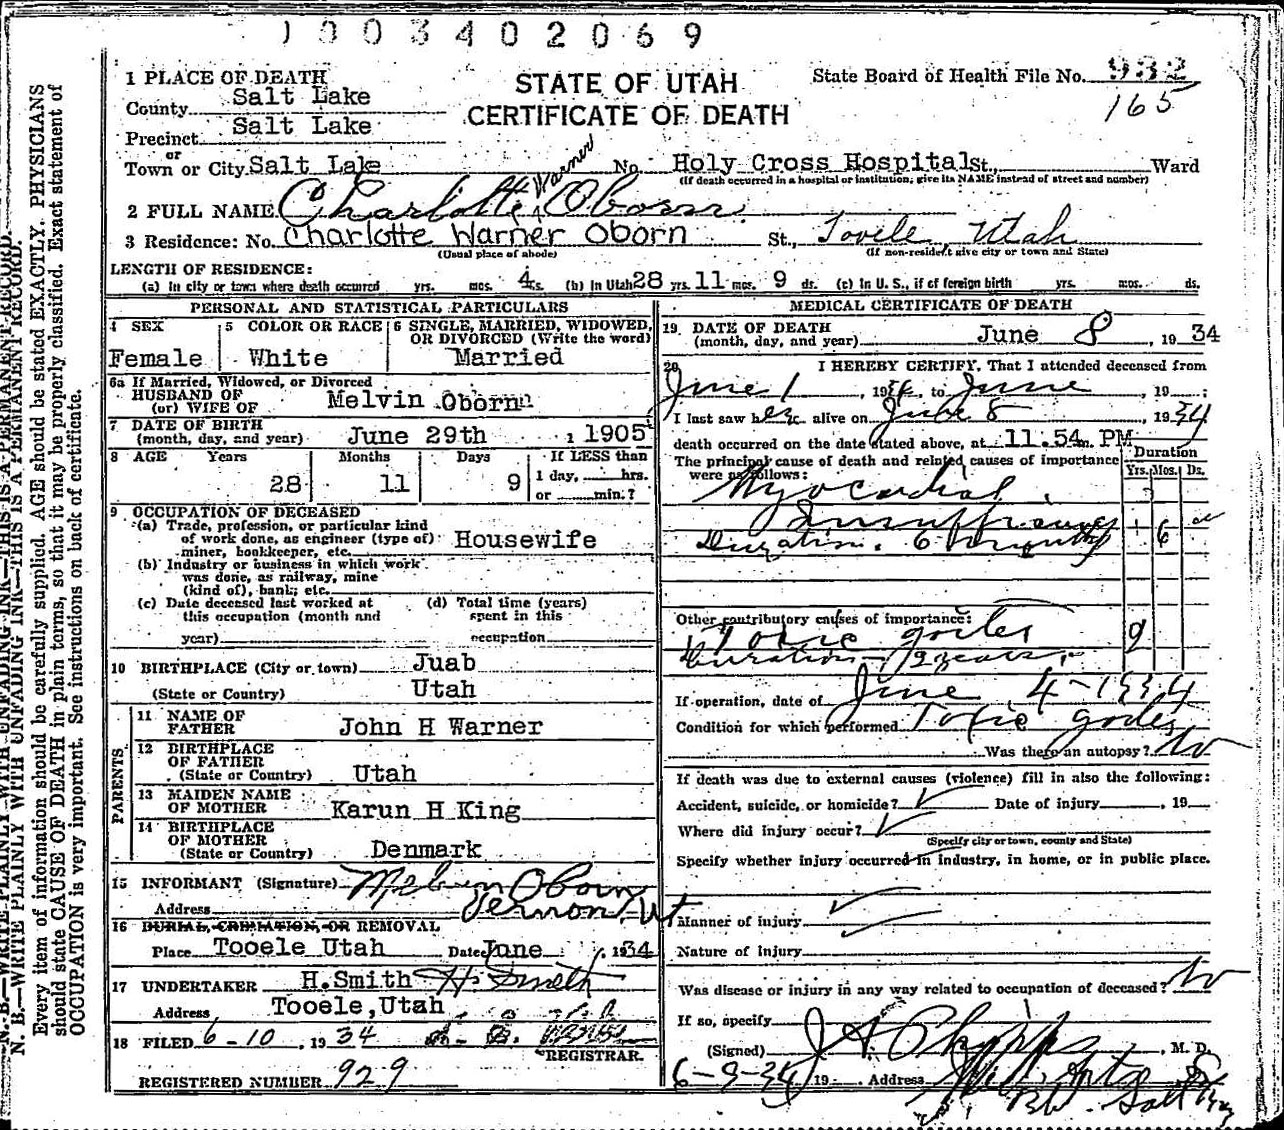 1003402069
1 PLACE OF DEATH
STATE OF UTAH
CERTIFICATE OF DEATH
State Board of Health File No. 932
165
County Salt Lake
Precinct Salt Lake
or
Town or City Salt Lake No. Holy Cross Hospital St. Ward
(If death occurred in a hospital or institution, give its NAME instead of street and number)
2 FULL NAME Charlotte Warner Oborn
3 Residence: No. Charlotte Warner Oborn St., Utah
(Usual place of abode) (If non-resident give city or town and State)
LENGTH OF RESIDENCE:
(a) In city or town where death occurred yrs. mos. 4 ds. (b) In Utah 28 yrs. 11 mos. 9 ds. (c) In U. S., if of foreign birth yrs. mos. ds.
PERSONAL AND STATISTICAL PARTICULARS
4 SEX
Female
5 COLOR OR RACE
White
6 SINGLE, MARRIED, WIDOWED, OR DIVORCED (Write the word)
Married
6a If Married, Widowed, or Divorced
HUSBAND OF
(or) WIFE OF Melvin Oborn
7 DATE OF BIRTH
(month, day, and year) June 29th 1905
8 AGE Years Months Days If LESS than
28 11 9 1 day, hrs.
or min.?
9 OCCUPATION OF DECEASED
(a) Trade, profession, or particular kind
of work done, as engineer (type of) Housewife
miner, bookkeeper, etc.
(b) Industry or business in which work
was done, as railway, mine
(kind of), bank; etc.
(c) Date deceased last worked at (d) Total time (years)
this occupation (month and spent in this
year) occupation
10 BIRTHPLACE (City or town) Juab
(State or Country) Utah
PARENTS
11 NAME OF
FATHER John H Warner
12 BIRTHPLACE
OF FATHER
(State or Country) Utah
13 MAIDEN NAME
OF MOTHER Karun H King
14 BIRTHPLACE
OF MOTHER
(State or Country) Denmark
15 INFORMANT (Signature) Melvin Oborn
Address Vernon, Ut
16 BURIAL, CREMATION, OR REMOVAL
Place Tooele Utah Date June 1934
17 UNDERTAKER H.Smith H. Smith
Address Tooele, Utah
18 FILED 6-10, 1934
REGISTRAR.
REGISTERED NUMBER 929
MEDICAL CERTIFICATE OF DEATH
19 DATE OF DEATH
(month, day, and year) June 8, 1934
20 I HEREBY CERTIFY, That I attended deceased from
June 1, 1934 to June, 19 ;
I last saw her alive on June 8 1934
death occurred on the date stated above, at 11.54 m. PM
The principal cause of death and related causes of importance Duration
were as follows: Yrs. Mos. Ds.
Myocardial
Insufficiency
Duration. 6 months 6
Other contributory causes of importance:
Toxic goiter
Duration 2 years 2
If operation, date of June 4-1934
Condition for which performed Toxic goiter
Was there an autopsy? No
If death was due to external causes (violence) fill in also the following:
Accident, suicide, or homicide? Date of injury , 19
Where did injury occur?
(Specify city or town, county and State)
Specify whether injury occurred in industry, in home, or in public place.
Manner of injury
Nature of injury
Was disease or injury in any way related to occupation of deceased? No
If so, specify
(Signed) , M. D.
6-9-34 19 Address
N. B.—WRITE PLAINLY WITH UNFADING INK—THIS IS A PERMANENT RECORD.
N. B.—WRITE PLAINLY WITH UNFADING INK—THIS IS A PERMANENT RECORD.
Every item of information should be carefully supplied. AGE should be stated EXACTLY. PHYSICIANS
should state CAUSE OF DEATH in plain terms, so that it may be properly classified. Exact statement of
OCCUPATION is very important. See instructions on back of certificate.